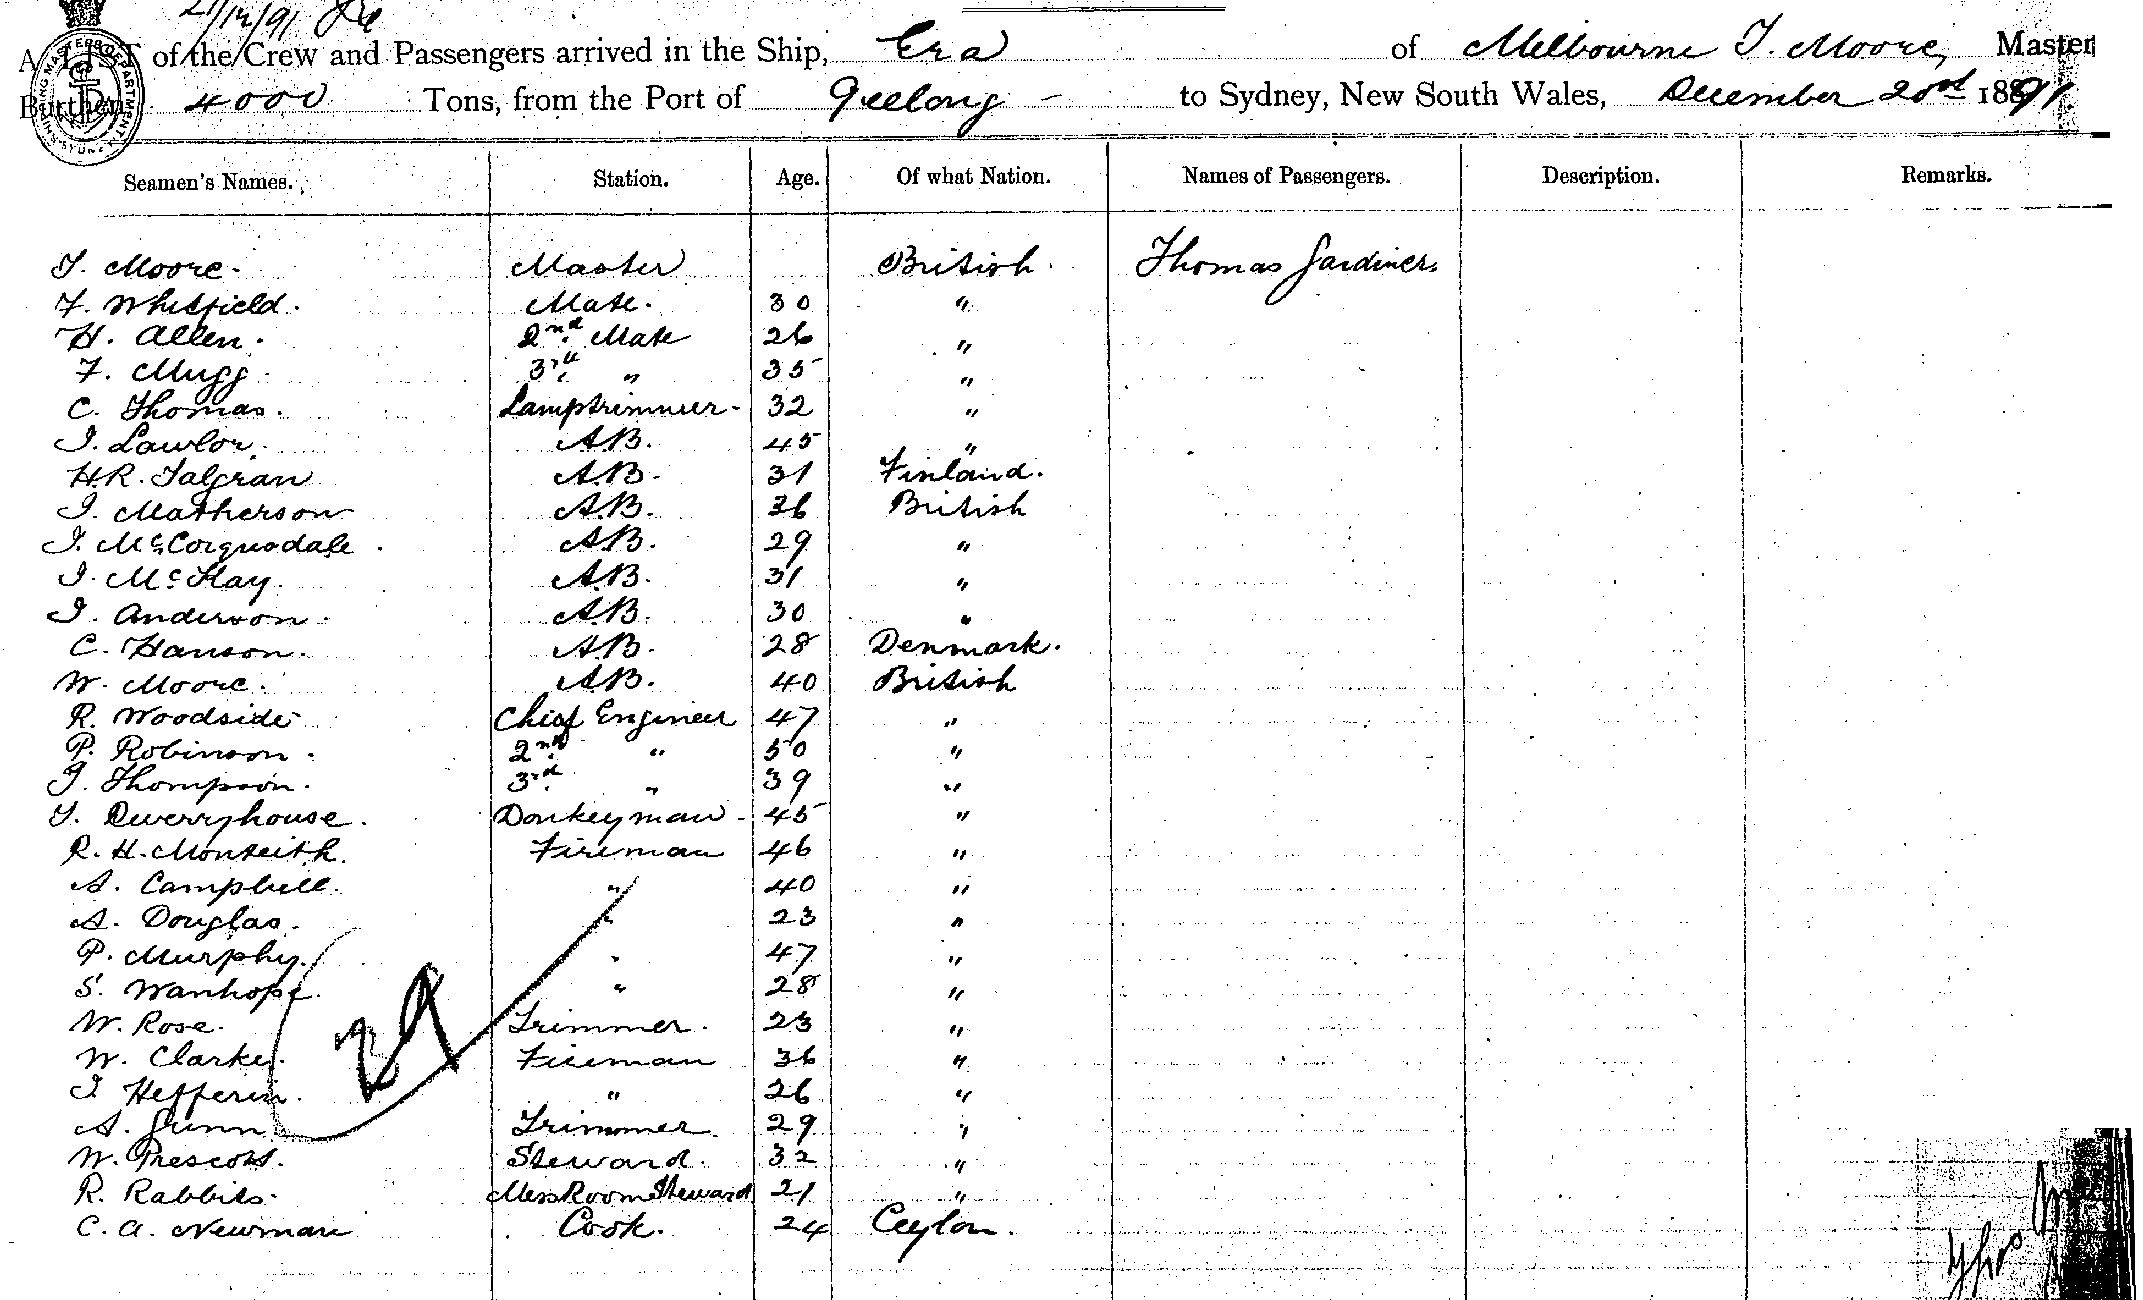 21/12/91
A LIST of the Crew and Passengers arrived in the Ship, Era of Melbourne T. Moore, Master
Burthen 4000 Tons, from the Port of Geelong to Sydney, New South Wales, December 20th 1891
Seamen's Names. Station. Age. Of what Nation. Names of Passengers. Description. Remarks.
T. Moore. Master British. Thomas Gardiner.
F. Whitfield. Mate. 30 "
H. Allen. 2nd Mate 26 "
F. Mugg. 3rd " 35 "
C. Thomas. Lamptrimmer 32 "
J. Lawlor. A.B. 45 "
H.R. Talgran A.B. 31 Finland.
J. Matherson A.B. 36 British
J. McCorquodale. A.B. 29 "
J. McKay. A.B. 31 "
J. Anderson. A.B. 30 "
C. Hanson. A.B. 28 Denmark.
W. Moore. A.B. 40 British
R. Woodside Chief Engineer 47 "
P. Robinson. 2nd " 50 "
J. Thompson. 3rd " 39 "
T. Dwerryhouse. Donkeyman 45 "
R. H. Monteith. Fireman 46 "
A. Campbell. " 40 "
A. Douglas. " 23 "
P. Murphy. " 47 "
S. Wanhope. " 28 "
W. Rose. Trimmer. 23 "
W. Clarke. Fireman 36 "
J. Hefferin. " 26 "
A. Gunn Trimmer. 29 "
W. Prescott. Steward. 32 "
R. Rabbits. Mess Room Steward 21 "
C. A. Newman Cook. 24 Ceylon.
29